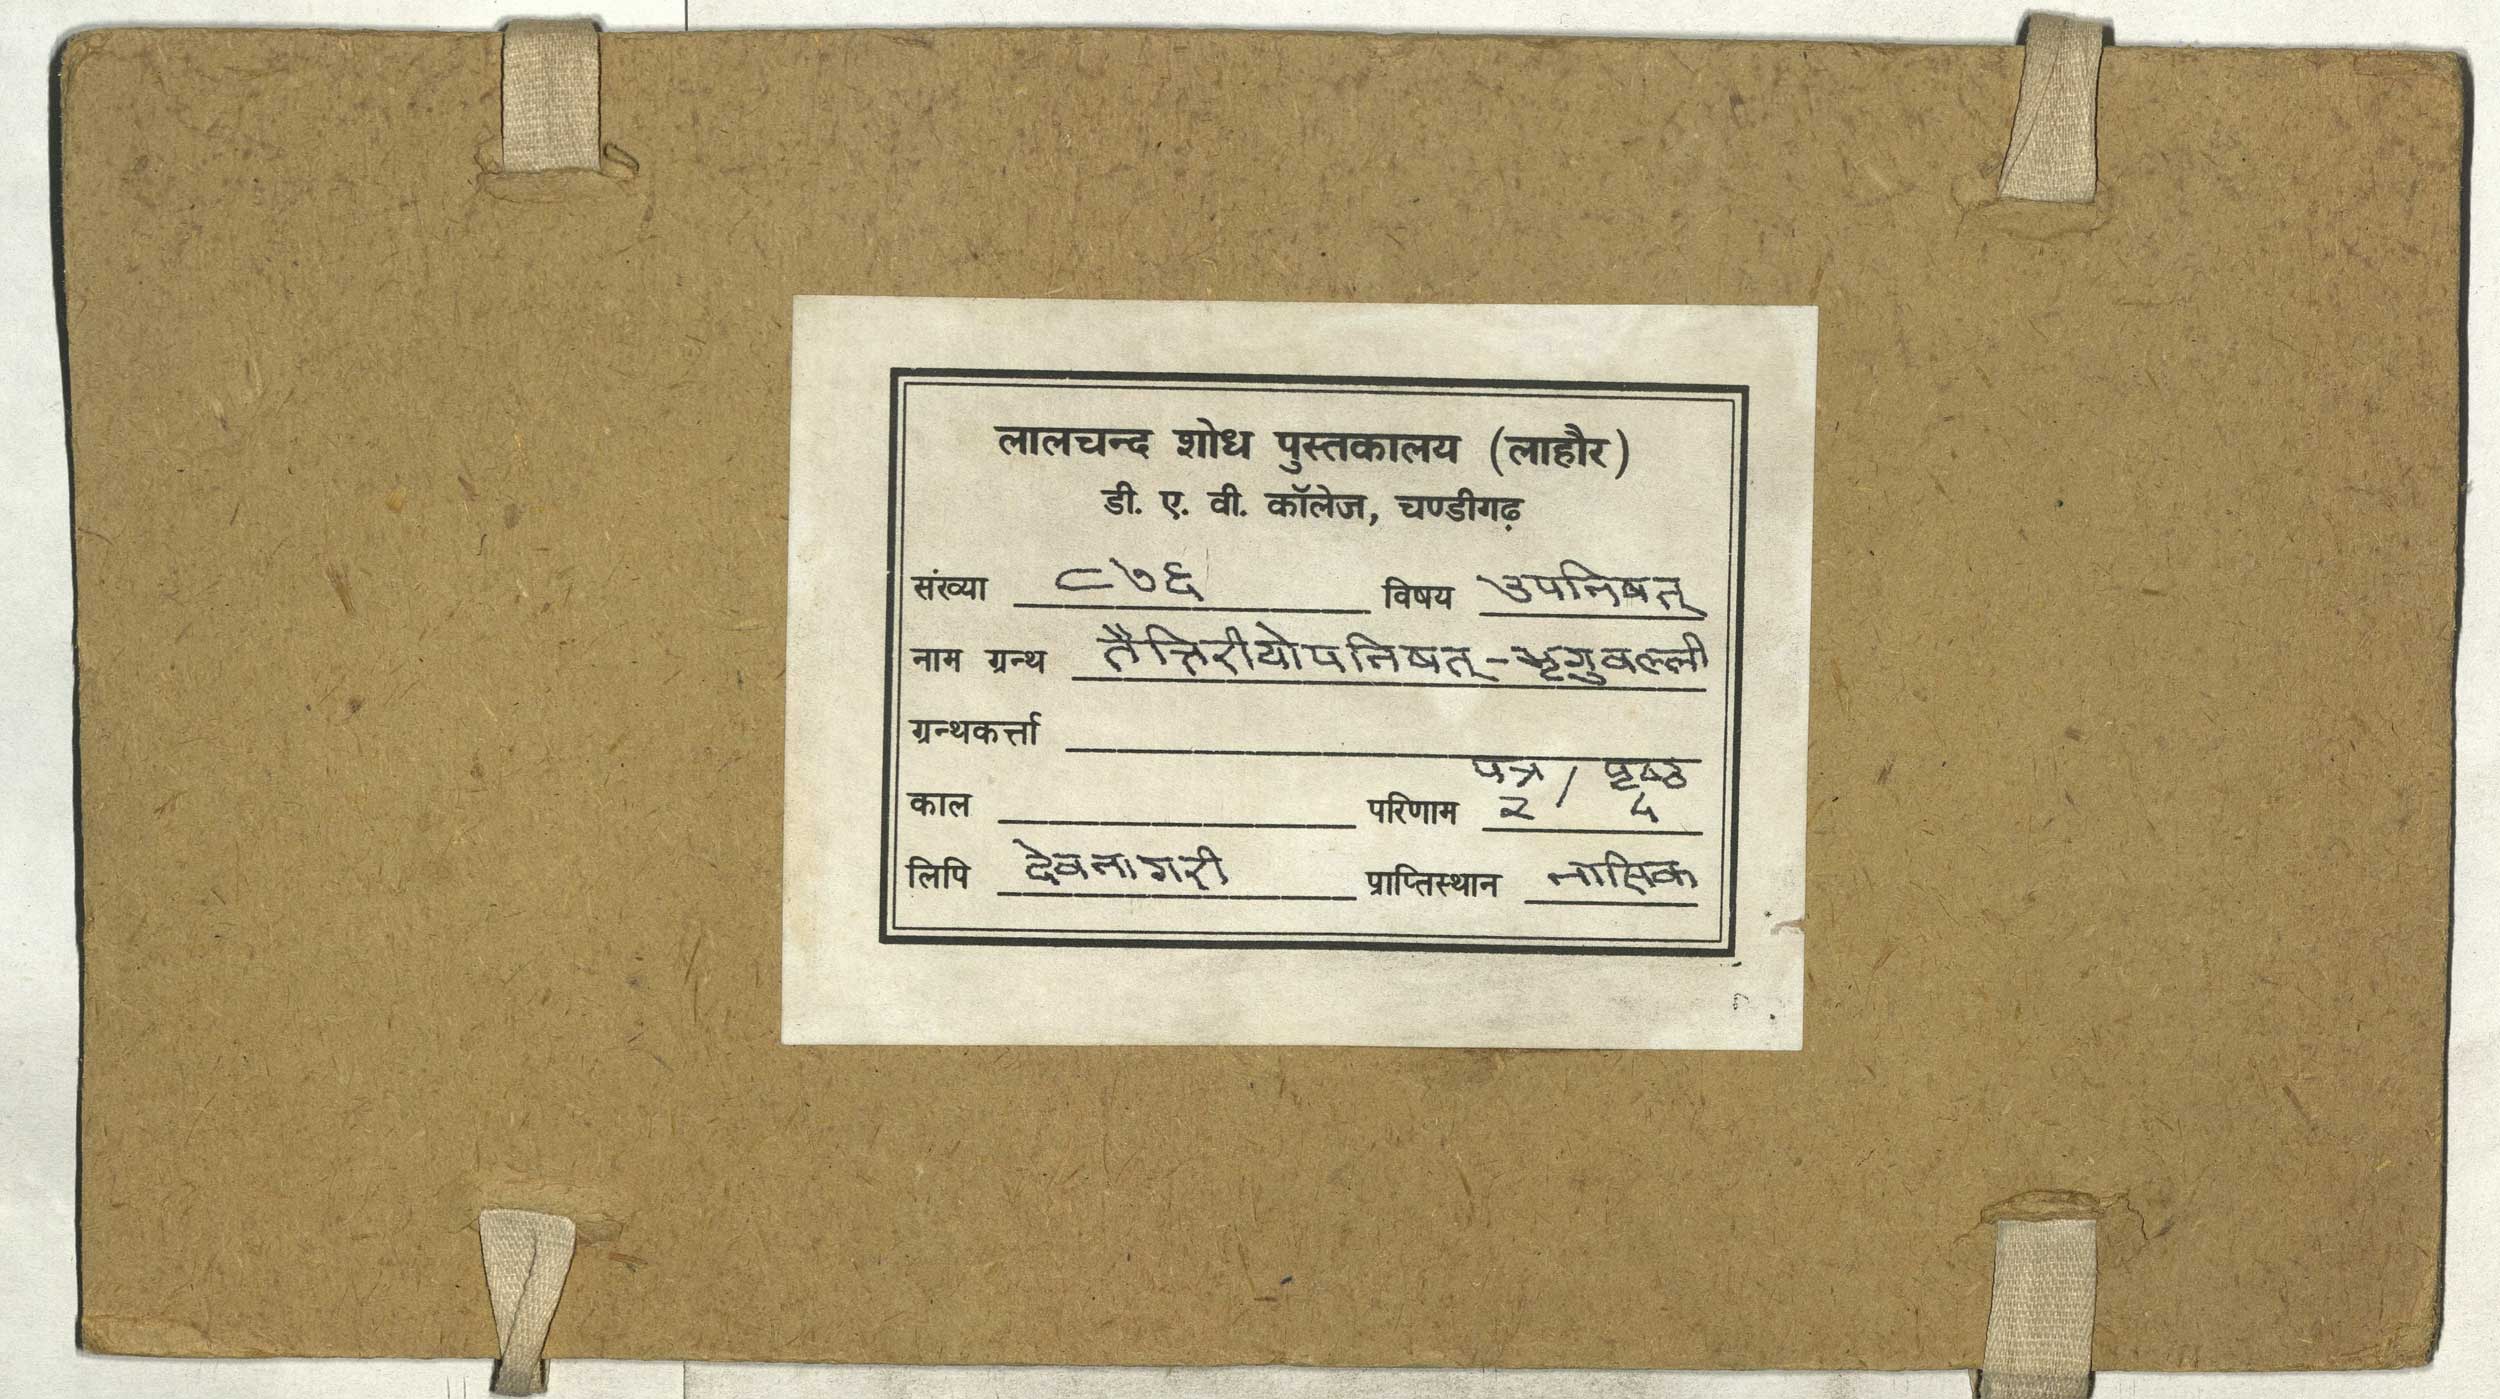 लालचन्द शोध पुस्तकालय (लाहौर)
डी. ए. वी. कॉलेज, चण्डीगढ़
संख्या ८७६ विषय उपनिषत्
नाम ग्रन्थ तैत्तिरीयोपनिषत्-भृगुवल्ली
ग्रन्थकर्त्ता
पत्र / पृष्ठ
काल परिणाम २ / ५
लिपि देवनागरी प्राप्तिस्थान नासिक